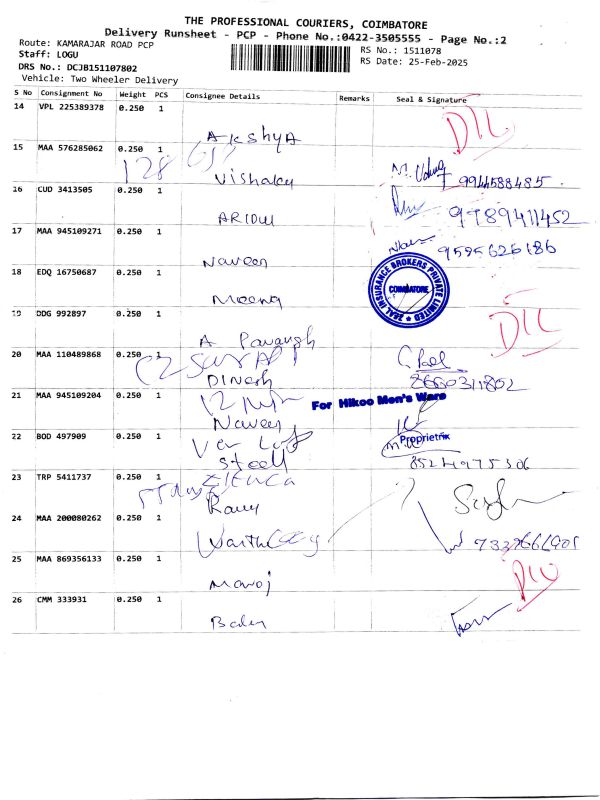 THE PROFESSIONAL COURIERS, COIMBATORE
Delivery Runsheet - PCP - Phone No.:0422-3505555 - Page No.:2
Route: KAMARAJAR ROAD PCP
RS No.: 1511078
Staff: LOGU
RS Date: 25-Feb-2025
DRS No.: DCJB151107802
Vehicle: Two Wheeler Delivery
S No Consignment No Weight PCS Consignee Details Remarks Seal & Signature
14 VPL 225389378 0.250 1
Akshya
15 MAA 576285062 0.250 1
128
Vishaley 9944588485
16 CUD 3413505 0.250 1
9789411452
17 MAA 945109271 0.250 1
Naveen 9595626186
18 EDQ 16750687 0.250 1
Meena
ZEAL INSURANCE BROKERS PRIVATE LIMITED
COIMBATORE
19 DDG 992897 0.250 1
A
20 MAA 110489868 0.250 1
Dinesh 8660311802
21 MAA 945109204 0.250 1
For Hikoo Men's Ware
12
Naveen
22 BOD 497909 0.250 1
Proprietrix
Steell 8524975306
23 TRP 5411737 0.250 1
Ramy
24 MAA 200080262 0.250 1
25 MAA 869356133 0.250 1
Manoj
26 CMM 333931 0.250 1